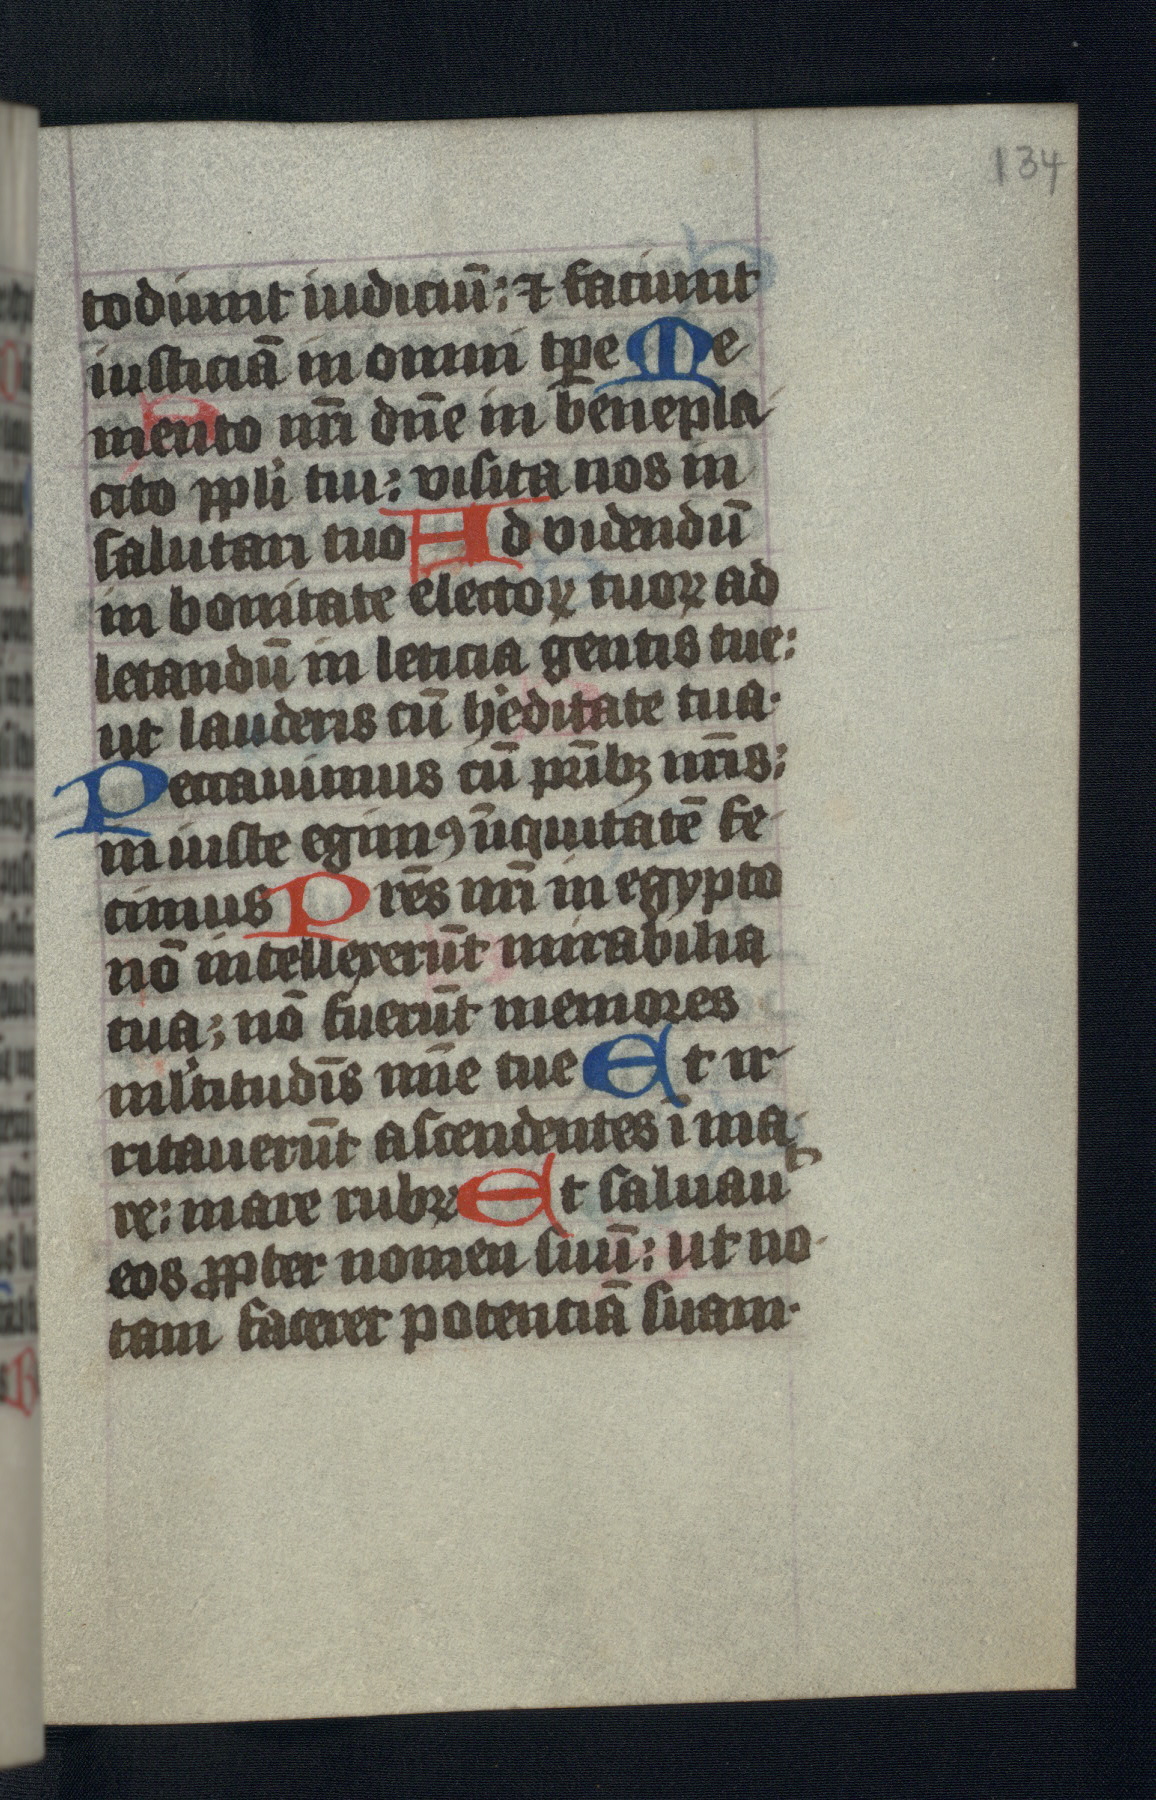 134
todiunt iudiciū: ⁊ faciunt
iusticiā in omni tꝑe Me
mento nr̄i dn̄e in benepla
cito ppli tui: visita nos in
salutari tuo Ad videndū
in bonitate electoꝝ tuoꝝ ad
letandū in leticia gentis tue:
ut lauderis cū h'editate tua.
Peccauimus cū pr̄ibꝫ nr̄is:
iniuste egimꝯ īiquitatē fe
cimus Pr̄es nr̄i in egypto
nō intellexerūt mirabilia
tua; nō fuerūt memores
ml'titudīs mīe tue Et ir
ritauerūt ascendentes ī ma
re: mare rubꝝ Et saluau͛
eos ꝓpter nomen suū: ut no
tam faceret potenciā suam.